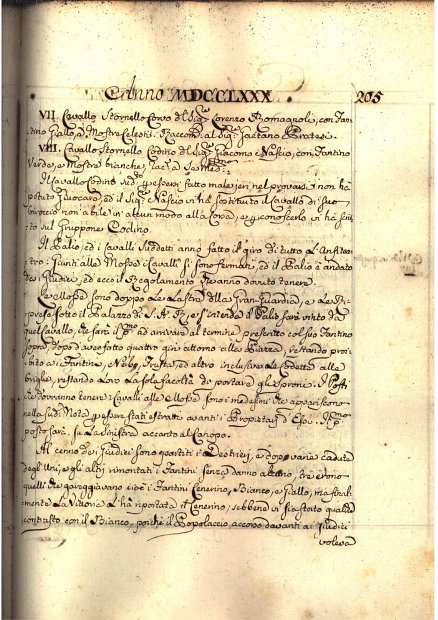 Anno MDCCLXXX. 205
VII. Cavallo Stornello Corvo del Sig. Lorenzo Romagnoli, con Fan-
tino Giallo, e Mostre Celesti. Raccom. al Sig. Gaetano Pratesi.
VIII. Cavallo Stornello Codino del Sig. Giacomo Nascio, con Fantino
Verde, e Mostre bianche,
Il Cavallo Codino sud. essersi fatto male jeri nel provarsi non ha
potuto giuocare, ed il Sig. Nascio vi ha sostituito il Cavallo di suo
non abile in alcun modo alla Corsa, e conoscerlo vi ha scrit-
to sul Gruppone Codino.
Il Palio, ed i Cavalli suddetti anno fatto il giro di tutto l'Anfitea-
tro: giunti alle Mosse i Cavalli si sono fermati, ed il Palio è andato
dai Giudici, ed ecco il Regolamento che anno dovuto tenere.
Le Mosse sono doppo le Lastre della Gran Guardia, e le Ri-
prese sotto il Palazzo di S. A. R. e s'intenda il Palio sarà vinto da
quel Cavallo, che sarà il P.mo ad arrivare al termine prescritto col suo Fantino
sopra, dopo d'aver fatto quattro giri attorno alla Piazza, restando proi-
bito ai Fantini, Nerbo, Frusta, ed altro inclusive la Codetta alle
briglie, restando loro la sola facoltà di portare gli sproni. I Posti
che dovranno tenere i Cavalli alle Mosse sono i medesimi che appariscono
nella sud. Nota essere stati estratti avanti i Proprietarj d'Essi. Il P.mo
posto sarà su la sinistra accanto al Canapo.
Al cenno dei Giudici sono partiti i Destrieri, e dopo varie cadute
degli Uni, e gli altri rimontati i Fantini senza danno alcuno, tre erono
quelli che gareggiavano cioè i Fantini Cenerino, Bianco, e Giallo, ma final-
mente la Vittoria l'hà riportata il Cenerino; sebbene vi sia stato qualche
contrasto con il Bianco, poichè il Popolaccio, accorso davanti ai Giudici
voleva